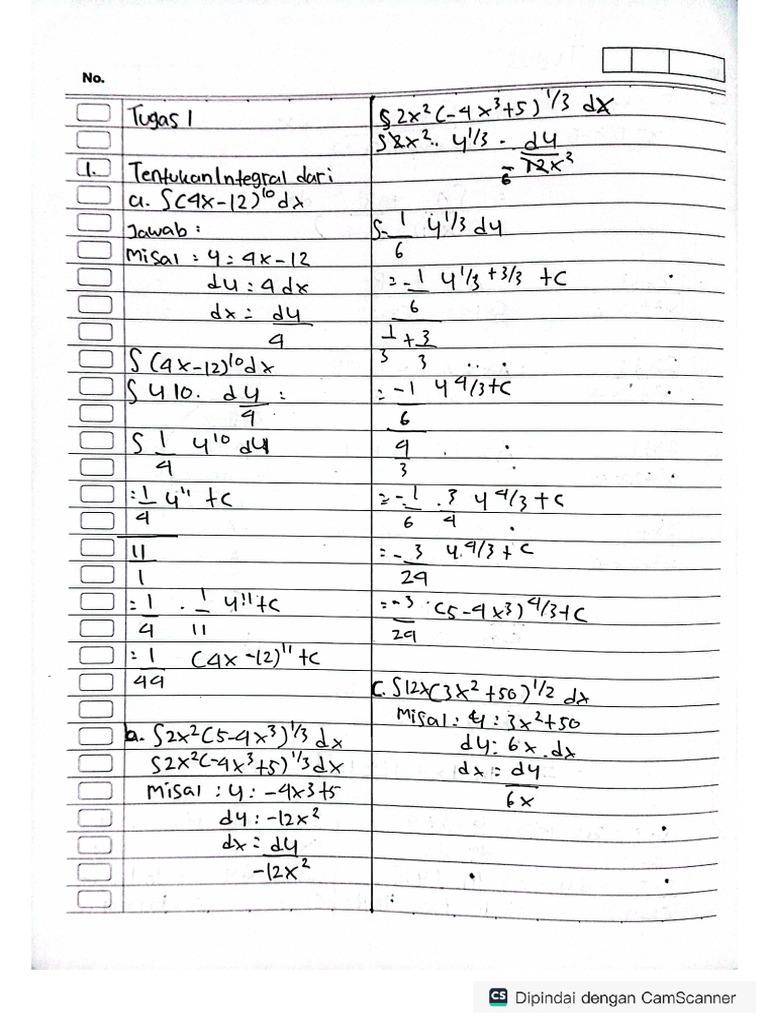 No.
Tugas 1
1. Tentukan Integral dari
a. ∫(4x-12)¹⁰dx
Jawab :
Misal : u = 4x-12
du = 4 dx
dx = du/4
∫(4x-12)¹⁰dx
∫ u10. du/4 =
∫ 1/4 u¹⁰ du
= 1/4 u¹¹ + c
11/1
= 1/4 . 1/11 u¹¹+c
= 1/44 (4x-12)¹¹+c
b. ∫2x²(5-4x³)¹/³ dx
∫2x²(-4x³+5)¹/³dx
Misal : u : -4x3+5
du : -12x²
dx = du/-12x²
∫2x²(-4x³+5)¹/³ dx
∫2x².. u¹/³ - du/12x²
6
∫-1/6 u¹/³ du
= -1/6 u¹/³ + 3/3 + c
1/3 + 3/3
= -1/6 u⁴/³+c
4/3
= -1/6 . 3/4 u⁴/³+c
= -3/24 u.⁴/³+c
= -3/24 . (5-4x³)⁴/³+c
c. ∫12x(3x²+50)¹/² dx
Misal : u : 3x²+50
du : 6x.dx
dx = du/6x
CS Dipindai dengan CamScanner